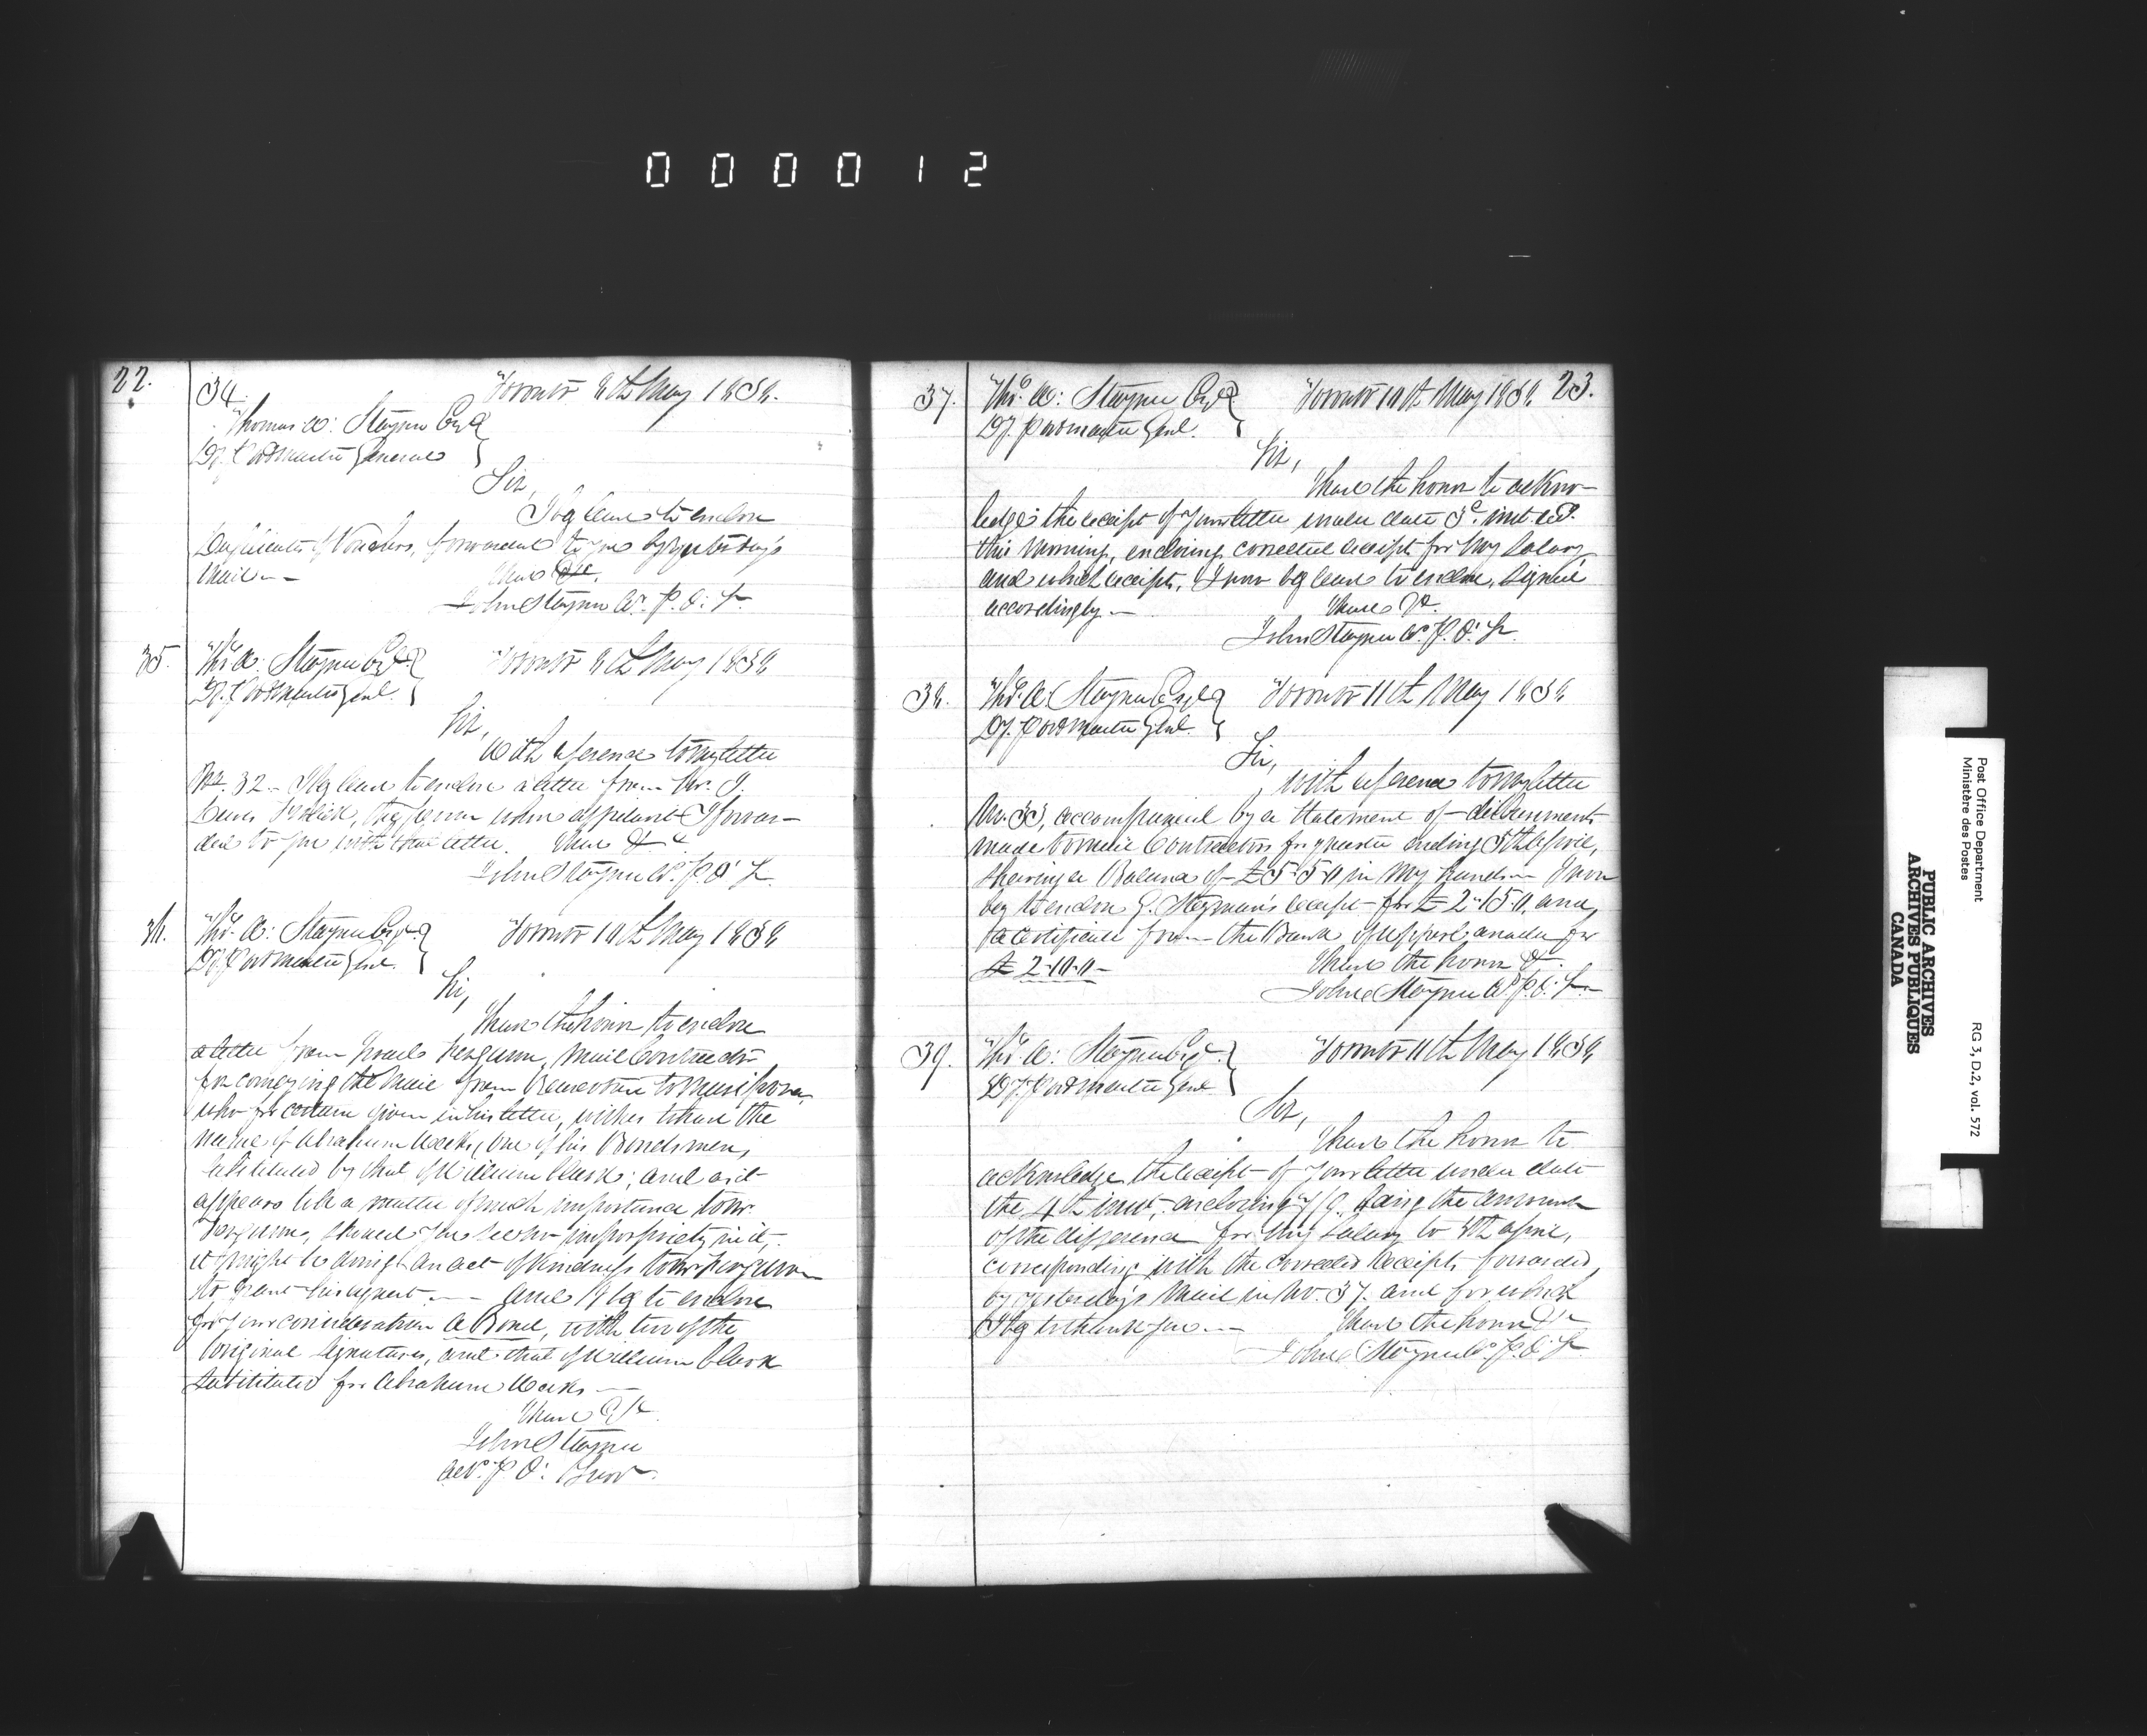 000012
22.
34. Toronto 8th May 1838.
Thomas A: Stayner Esqr
Dy. Postmaster General
Sir,
I beg leave to enclose
Duplicates of Vouchers, forwarded to you by yesterday's
Mail—
I have &c.
John Stayner At. P. O: Sr.
35. Thos. A: Stayner Esqr. Toronto 8th May 1838
Dy. Postmaster Genl.
Sir,
With reference to my letter
No. 32.— I beg leave to enclose a letter from Mr. J.
whose application I forwar-
ded to you with that letter. I have &c
John Stayner At. P. O: Sr.
36. Thos. A: Stayner Esqr. Toronto 10th May 1838
Dy. Postmaster Genl.
Sir,
I have the honor to enclose
a letter from Israel Ferguson, Mail Contractor
for conveying the Mail from
who for certain given in his letter, wishes to have the
name of Abraham Weeks, one of his Bondsmen,
substituted by that of William Clark; and as it
appears to be a matter of much importance to Mr.
Ferguson, should you see no impropriety in it,
it might be doing an act of kindness to Mr Ferguson
to grant his request.— and I beg to enclose
for your consideration a Bond, with two of the
original signatures, and that of William Clark
substituted for Abraham Weeks—
I have &c
John Stayner
At. P. O: Surv
23.
37. Thos. A: Stayner Esqr. Toronto 10th May 1838
Dy. Postmaster Genl.
Sir,
I have the honor to acknow-
ledge the receipt of your letter under date 3d. inst. recd.
this morning, enclosing corrected receipts for my Salary,
and which receipts, I now beg leave to enclose, signed
accordingly.— I have &c.
John Stayner At. P. O: Sr.
38. Thos. A: Stayner Esqr Toronto 11th May 1838
Dy. Postmaster Genl.
Sir,
With reference to my letter
No. 33, accompanied by a Statement of disbursements
made to Mail Contractors for quarter ending 5th April,
shewing a Balance of £5.5.0 in my hands— I now
beg to enclose G. Stegman's receipt for £2.15.0, and
a certificate from the Bank of Upper Canada for
£2.10.0— I have the honor &c.
John Stayner At. P. O: Sr.
39. Thos. A: Stayner Esqr. Toronto 11th May 1838
Dy. Postmaster Genl.
Sir,
I have the honor to
acknowledge the receipt of your letter under date
the 4th inst., enclosing being the amount
of the difference for my Salary to 5th April,
corresponding with the corrected receipts forwarded
by yesterday's Mail in No. 37. and for which
I beg to thank you.— I have the honor &c
John Stayner At. P. O: Sr
Post Office Department
Ministère des Postes
RG 3, D.2, vol. 572
PUBLIC ARCHIVES
ARCHIVES PUBLIQUES
CANADA